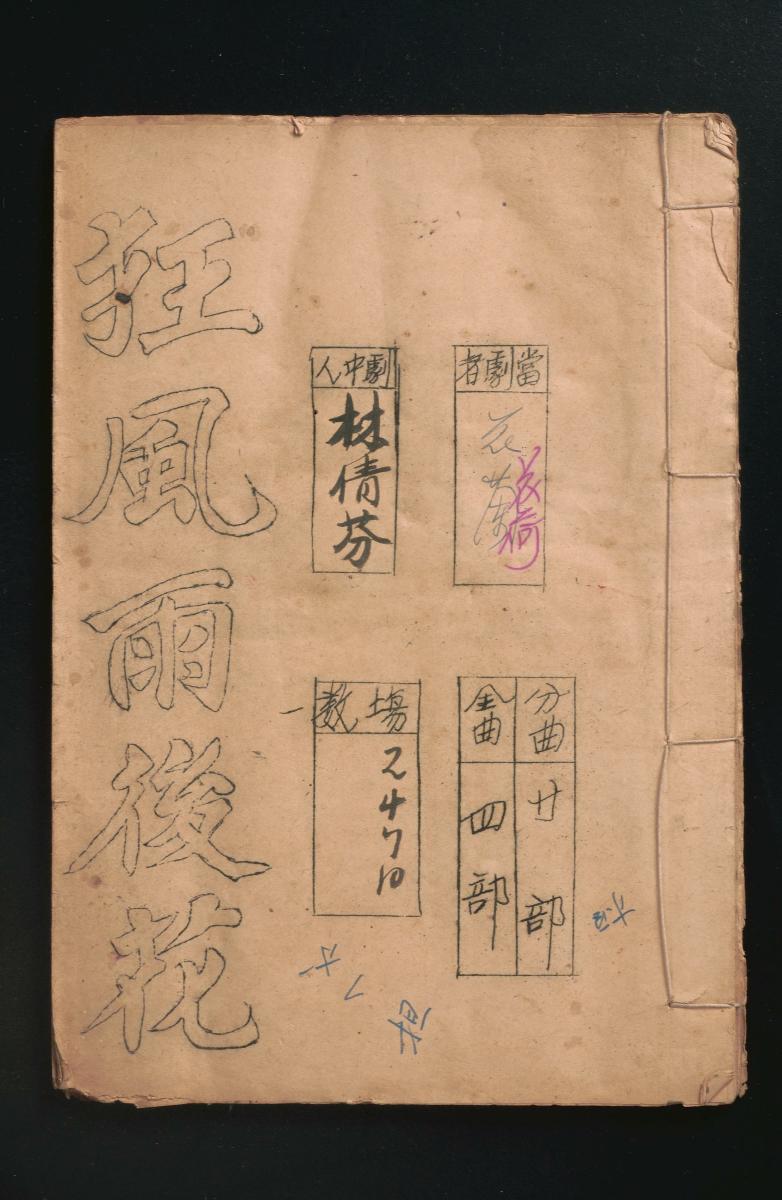 狂風雨後花
當劇者
劇中人
林倩芬
分曲
廿部
全曲
四部
場數
2 4 7 10